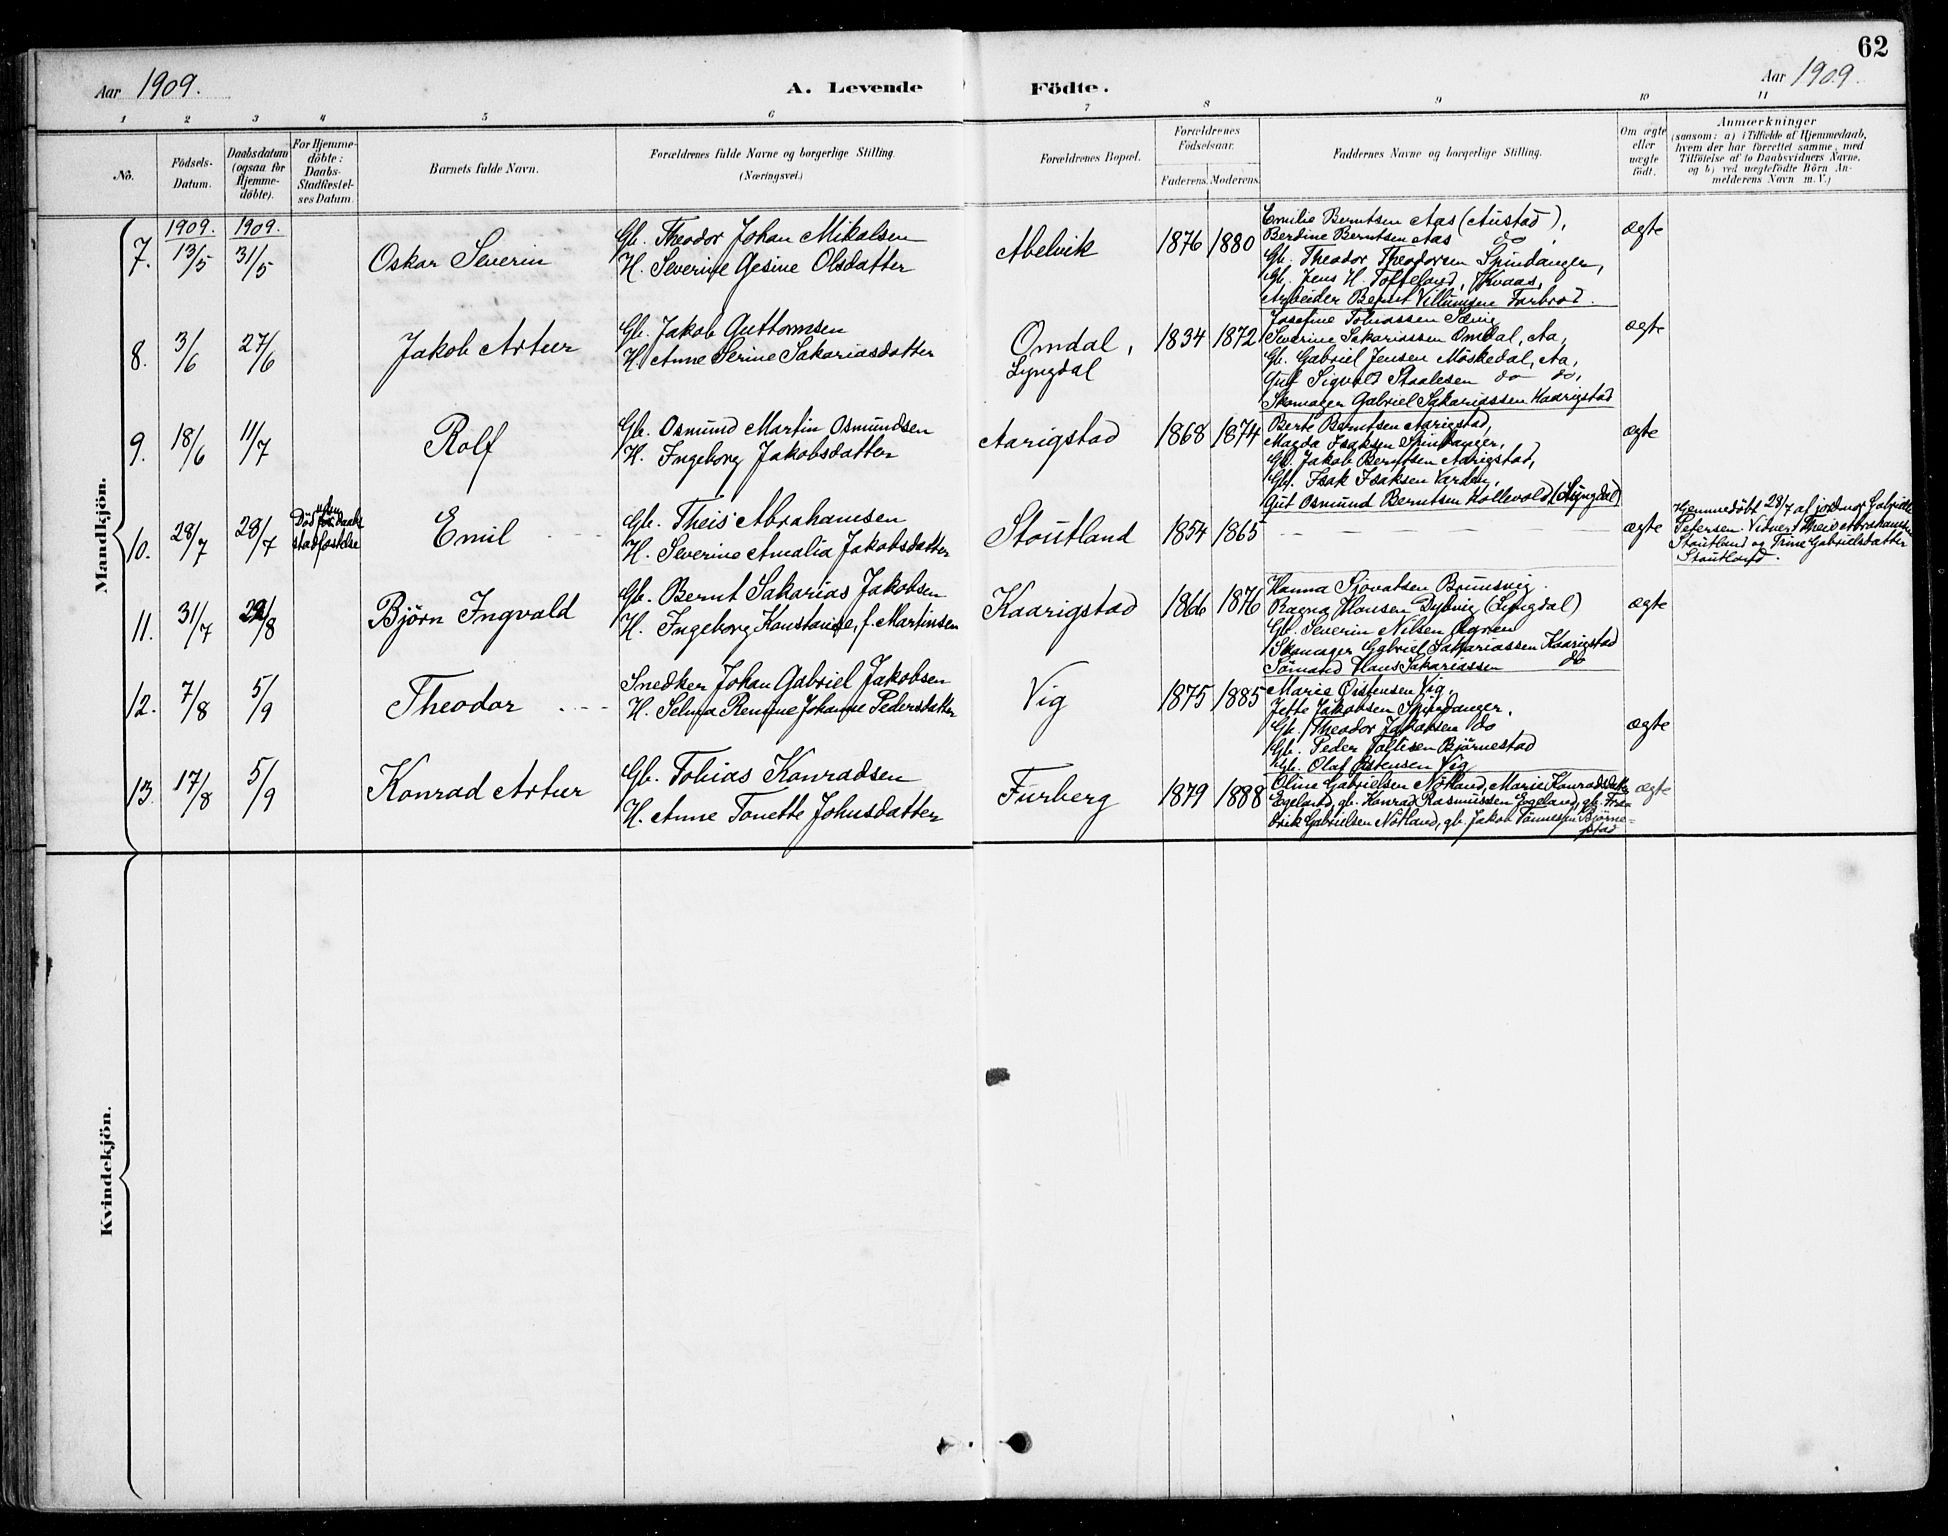 62
Aar 1909.
A. Levende Födte.
Aar 1909.
1 2 3 4 5 6 7 8 9 10 11
No.
Födsels-Datum.
Daabsdatum (ogsaa for Hjemme-döbte).
For Hjemme-döbte: Daabs-Stadfæstel-ses Datum.
Barnets fulde Navn.
Forældrenes fulde Navne og borgerlige Stilling.
(Næringsvei.)
Forældrenes Bopæl.
Forældrenes Födselsaar.
Faderens. Moderens.
Faddernes Navne og borgerlige Stilling.
Om ægte eller uægte födt.
Anmærkninger
(saasom: a) i Tilfælde af Hjemmedaab,
hvem der har forrettet samme, med
Tilföielse af to Daabsvidners Navne,
og b) ved uægtefödte Börn An-
melderens Navn m. V.)
Mandkjön.
1909. 1909.
7. 13/5 31/5 Oskar Severin
Gb. Theodor Johan Mikalsen
H. Severine Gesine Olsdatter
Abelvik 1876 1880
Emilie Berntsen Aas (Austad),
Berdine Berntsen Aas do,
Gb. Theodor Theodorsen Spindanger,
Gb. Jens H. Tofteland, Kvaas,
Arbeider Bernt Villumsen Farbrod.
ægte
8. 3/6 27/6 Jakob Artur
Gb. Jakob Guttormsen
H. Anne Serine Sakariasdatter
Omdal,
Lyngdal
1834 1872
Josefine Tobiassen
Severine Sakariassen Omdal, Aa,
Gb. Gabriel Jensen Møskedal, Aa,
Gut Sigvald Staalesen do do,
Skomager Gabriel Sakariassen Kaarigstad
ægte
9. 18/6 11/7 Rolf
Gb. Osmund Martin Osmundsen
H. Ingeborg Jakobsdatter
Aarigstad 1868 1874
Berte Berntsen Aarigstad,
Magda Isaksen Spindanger,
Gb. Jakob Berntsen Aarigstad,
Gb. Isak Isaksen Varden,
Gut Osmund Berntsen Hollevold (Lyngdal)
ægte
10. 28/7 28/7
Død uden daabs
stadfæstelse
Emil
Gb. Theis Abrahamsen
H. Severine Amalia Jakobsdatter
Stoutland 1854 1865
ægte
Hjemmedøbt 28/7 af jordmor Gabrielle
Petersen. Vidner: Theis Abrahamsen
Stoutland og Trine Gabrielsdatter
Stoutland.
11. 31/7 /8 Bjørn Ingvald
Gb. Bernt Sakarias Jakobsen
H. Ingeborg Konstanse, f. Martinsen
Kaarigstad 1866 1876
Hanna Sjovatsen Brunsvig.
Ragna Hansen Dybvig (Lyngdal)
Gb. Severin Nilsen
Skomager Gabriel Sakariassen Kaarigstad
Sømand Hans Sakariassen do
ægte
12. 7/8 5/9 Theodor
Snedker Johan Gabriel Jakobsen
H. Selma Johanne Pedersdatter
Vig 1875 1885
Marie Østensen Vig,
Jette Jakobsen Spindanger,
Gb. Theodor Jakobsen do
Gb. Peder Bjørnestad
Gb. Olaf Østensen Vig
ægte
13. 17/8 5/9 Konrad Artur
Gb. Tobias Konradsen
H. Anne Tonette Johnsdatter
Furberg 1879 1888
Oline Gabrielsen Nøtland, Marie Konradsdatter
Egeland, gb. Konrad Rasmussen Egeland, gb. Fre-
drik Gabrielsen Nøtland, gb. Jakob Tønnesen Bjørne-
stad
ægte
Kvindekjön.